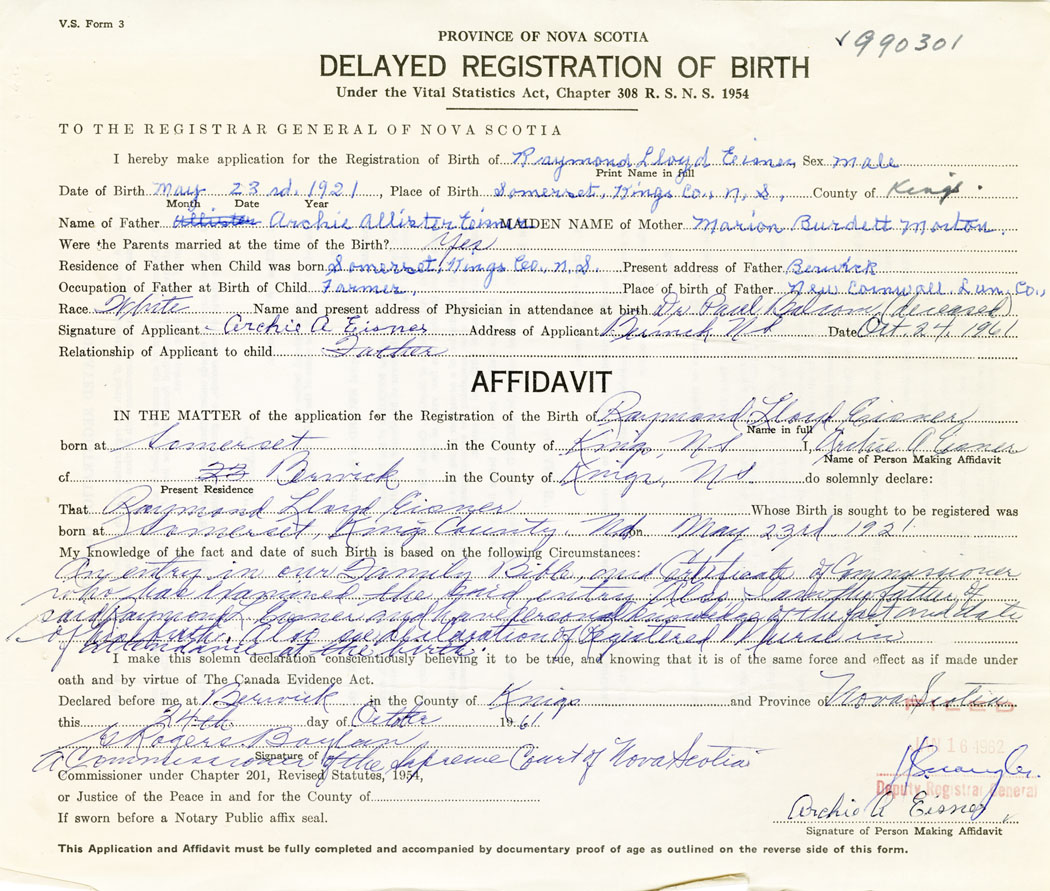 V.S. Form 3
PROVINCE OF NOVA SCOTIA
990301
DELAYED REGISTRATION OF BIRTH
Under the Vital Statistics Act, Chapter 308 R. S. N. S. 1954
TO THE REGISTRAR GENERAL OF NOVA SCOTIA
I hereby make application for the Registration of Birth of Raymond Lloyd Eisner, Sex male
Print Name in full
Date of Birth May 23rd. 1921, Place of Birth Somerset, Kings Co., N, S., County of Kings.
Month Date Year
Name of Father Allister Archie Allister Eisner MAIDEN NAME of Mother Marion Burdett Morton.
Were the Parents married at the time of the Birth? Yes
Residence of Father when Child was born Somerset, Kings Co., N, S. Present address of Father Berwick
Occupation of Father at Birth of Child Farmer, Place of birth of Father New Cornwall Lun, Co.,
Race White Name and present address of Physician in attendance at birth Dr Paul (deceased)
Signature of Applicant Archie A Eisner Address of Applicant Berwick NS Date Oct. 24, 1961
Relationship of Applicant to child Father
AFFIDAVIT
IN THE MATTER of the application for the Registration of the Birth of Raymond Lloyd Eisner
Name in full
born at Somerset in the County of Kings, NS I, Archie A Eisner
Name of Person Making Affidavit
of Berwick in the County of Kings, NS do solemnly declare:
Present Residence
That Raymond Lloyd Eisner Whose Birth is sought to be registered was
born at Somerset, Kings County, NS on May 23rd 1921
My knowledge of the fact and date of such Birth is based on the following Circumstances:
An entry in our Family Bible, and Certificate of Commissioner
who has examined the said entry Also I am the father of
said Raymond L Eisner and have personal knowledge of the fact and date
of his birth. Also declaration of Registered Nurse in
attendance at the birth.
I make this solemn declaration conscientiously believing it to be true, and knowing that it is of the same force and effect as if made under
oath and by virtue of The Canada Evidence Act.
Declared before me at Berwick in the County of Kings and Province of Nova Scotia
this 24th day of October 1961
FILED
JAN 16 1962
E Rogers Boylan
Signature of
A Commissioner of the Supreme Court of Nova Scotia
Commissioner under Chapter 201, Revised Statutes, 1954,
Deputy Registrar General
or Justice of the Peace in and for the County of
Archie A Eisner
If sworn before a Notary Public affix seal.
Signature of Person Making Affidavit
This Application and Affidavit must be fully completed and accompanied by documentary proof of age as outlined on the reverse side of this form.